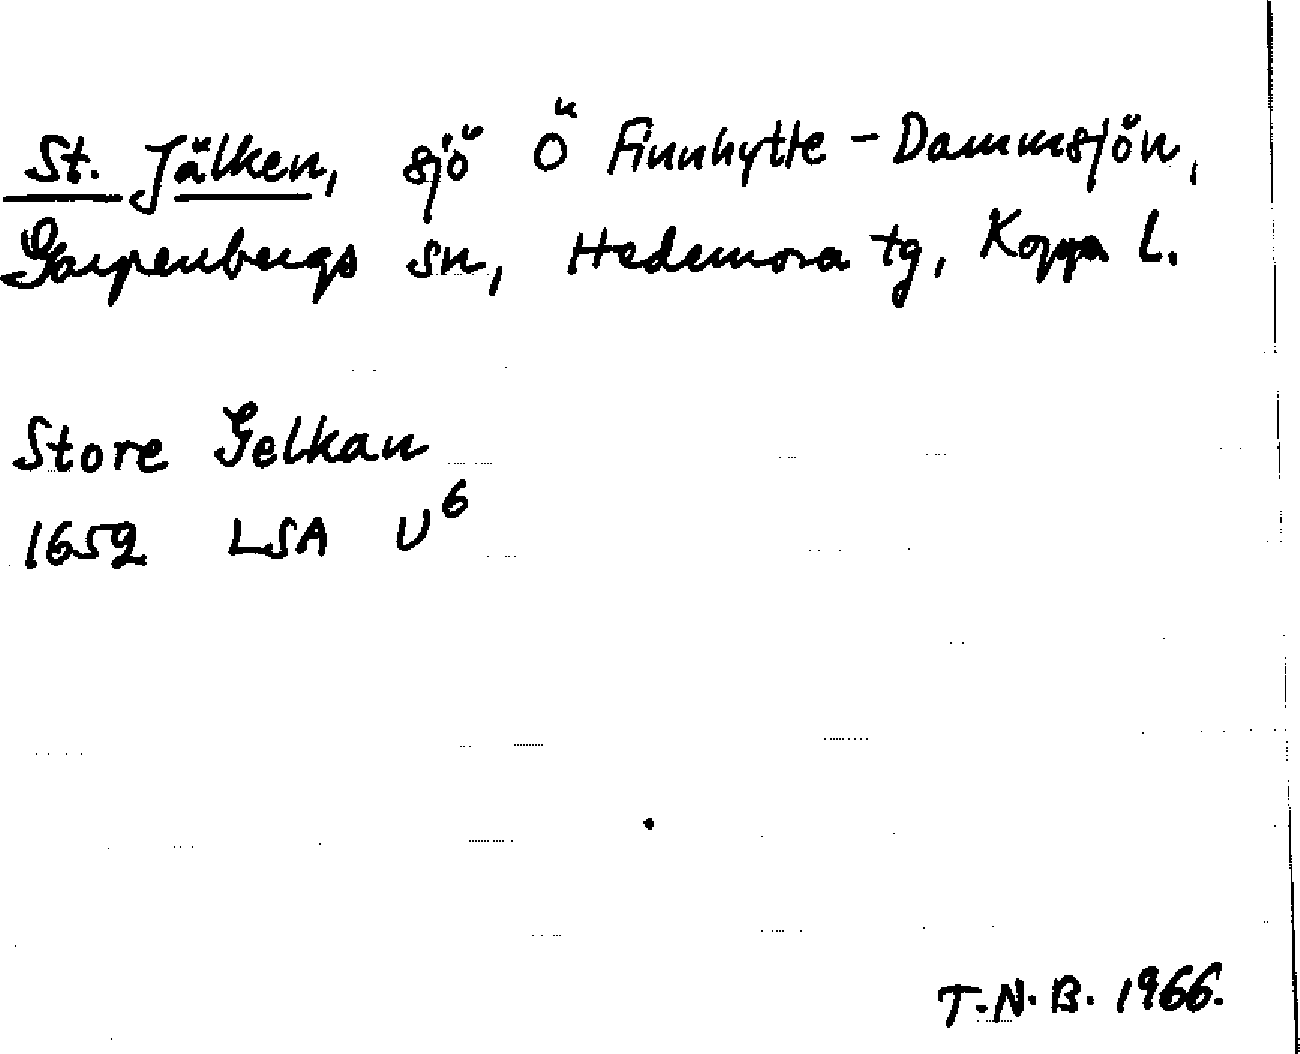 St. Jälken, sjö Ö Finnhytte-Dammsjön,
Garpenbergs sn, Hedemora tg, Kopp. L.
Store Gelkan
1652 LSA U6
T.N.B. 1966.